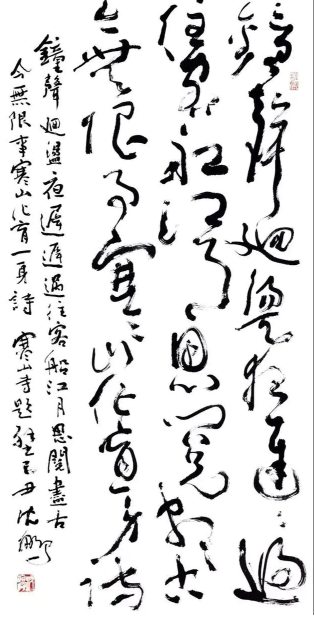 鐘聲迴盪夜遲遲過
往客船江月思閱盡古
今無限事寒山化育一身詩
鐘聲迴盪夜遲遲過往客船江月思閱盡古
今無限事寒山化育一身詩 寒山寺題壁 己丑 沈鵬